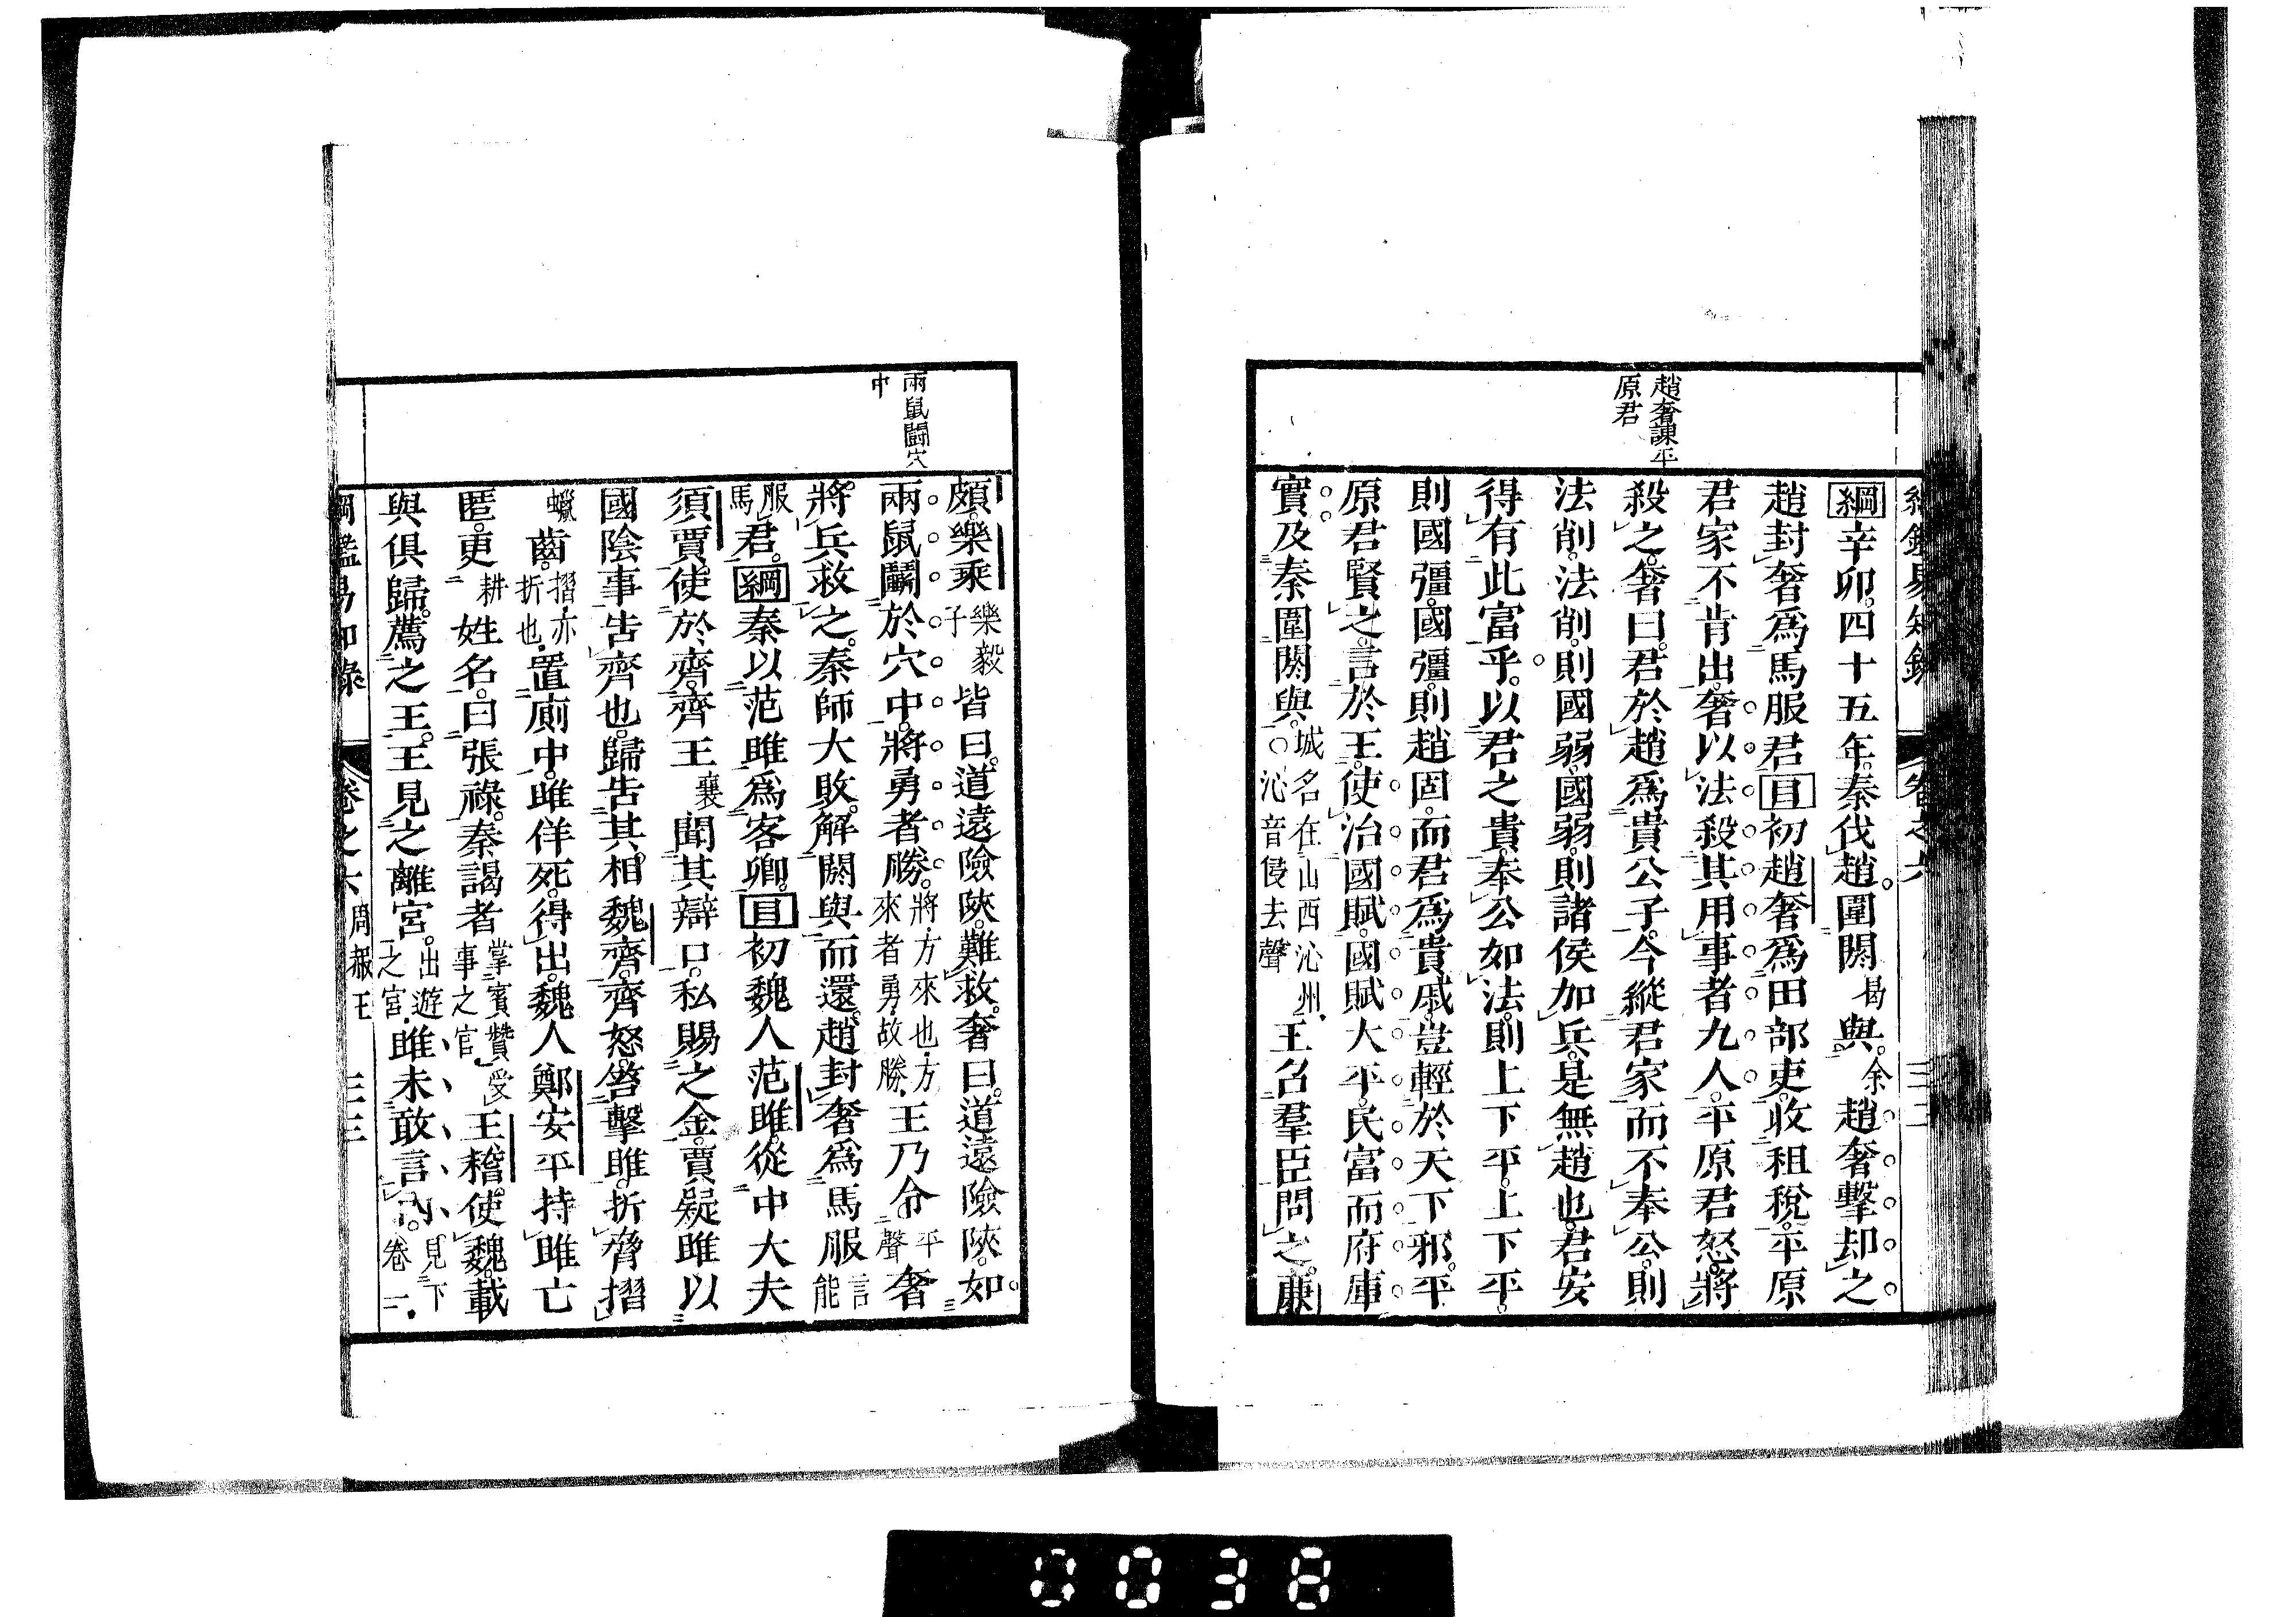 綱鑑易知錄 卷之六 三二
趙奢諫平
原君
綱辛卯。四十五年。秦伐趙。圍閼曷與。余趙奢擊却之
趙封奢爲馬服君目初趙奢爲田部吏。收租稅。平原
君家不肯出。奢以法殺其用事者九人。平原君怒。將
殺之。奢曰。君於趙爲貴公子。今縱君家而不奉公。則
法削。法削。則國弱。國弱。則諸侯加兵。是無趙也。君安
得有此富乎。以君之貴。奉公如法。則上下平。上下平。
則國彊。國彊。則趙固。而君爲貴戚。豈輕於天下邪。平
原君賢之。言於王。使治國賦。國賦大平。民富而府庫
實。及秦圍閼與。城名在山西沁州。○沁音侵去聲王召羣臣問之。廉
兩鼠鬪穴
中
頗。樂乘樂毅子皆曰。道遠險陜。難救。奢曰。道遠險陜。如
兩鼠鬬於穴中。將勇者勝。將、方來也、方來者勇、故勝、王乃令平聲奢
將兵救之。秦師大敗。解閼與而還。趙封奢爲馬服言能
服馬君。綱秦以范雎爲客卿。目初魏人范雎。從中大夫
須賈。使於齊。齊王襄聞其辯口。私賜之金。賈疑雎以
國陰事告齊也。歸告其相魏齊。齊怒。笞擊雎。折脅摺
蠟齒。摺、亦折也、置廁中。雎佯死。得出。魏人鄭安平持雎亡
匿。更耕姓名。曰張祿。秦謁者掌賓贊受事之官、王稽。使魏。載
與俱歸。薦之王。王見之離宮。出遊之宮、雎未敢言內。見下卷一、
綱鑑易知錄 卷之六 周赧王 三三
0038